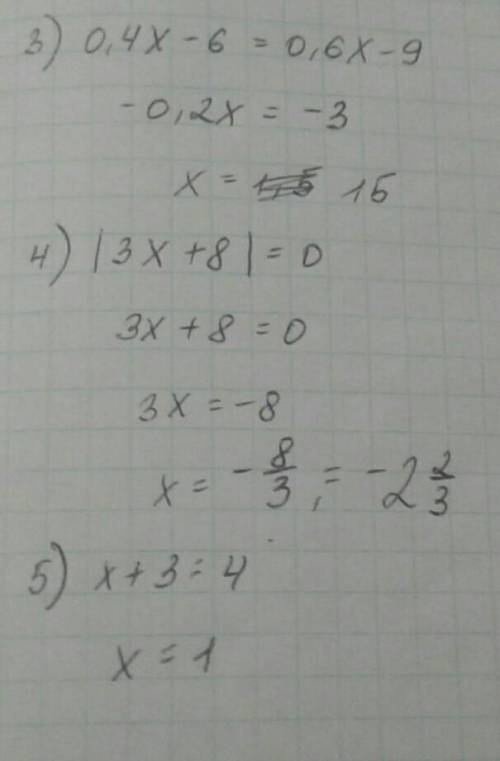 3) 0,4x - 6 = 0,6x - 9
-0,2x = -3
x = 15
4) |3x + 8| = 0
3x + 8 = 0
3x = -8
x = -8/3, = -2 2/3
5) x + 3 = 4
x = 1